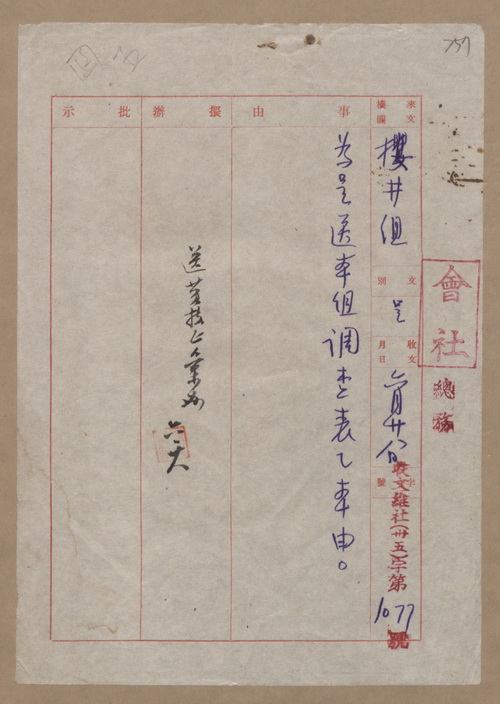 757
會社
總務
來文機關
櫻井組
文別
呈
收文月日
六月廿八日
字號
收文雄社(卅五)字第1077號
事由
為呈送本組調查表乙本由。
擬辦
送技正彙办
批示